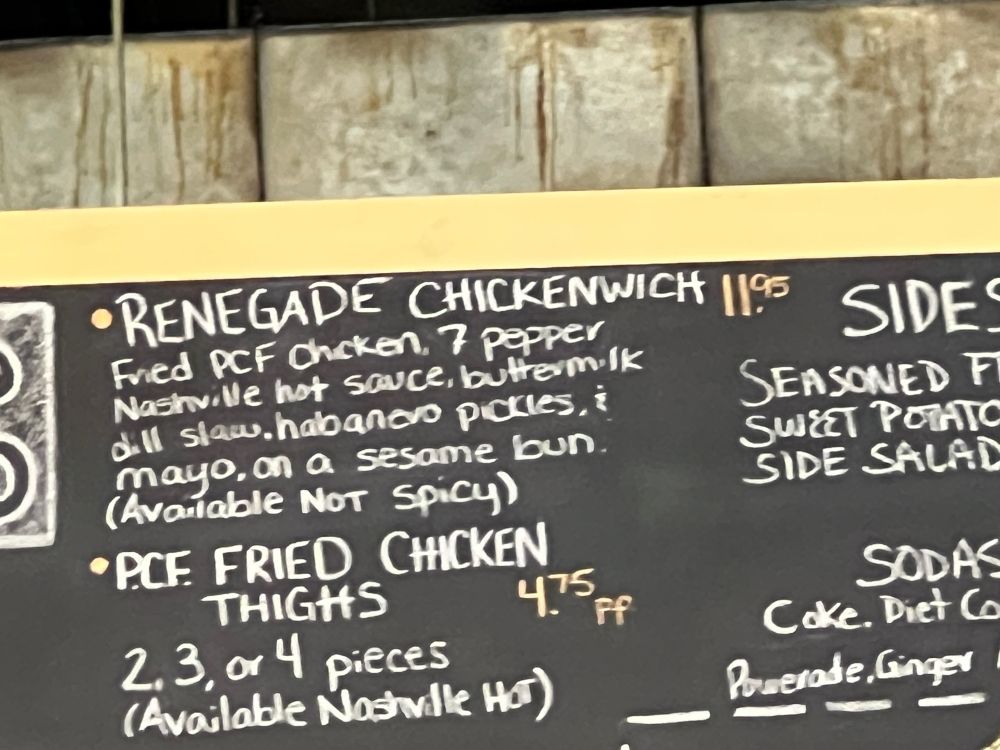 • RENEGADE CHICKENWICH 11.95
Fried PCF Chicken, 7 pepper
Nashville hot sauce, buttermilk
dill slaw, habanero pickles, &
mayo, on a sesame bun.
(Available NOT Spicy)
• P.C.F. FRIED CHICKEN
THIGHS 4.75 PP
2, 3, or 4 pieces
(Available Nashville Hot)
SIDES
SEASONED F
SWEET POTATO
SIDE SALAD
SODAS
Coke, Diet Co
Powerade, Ginger